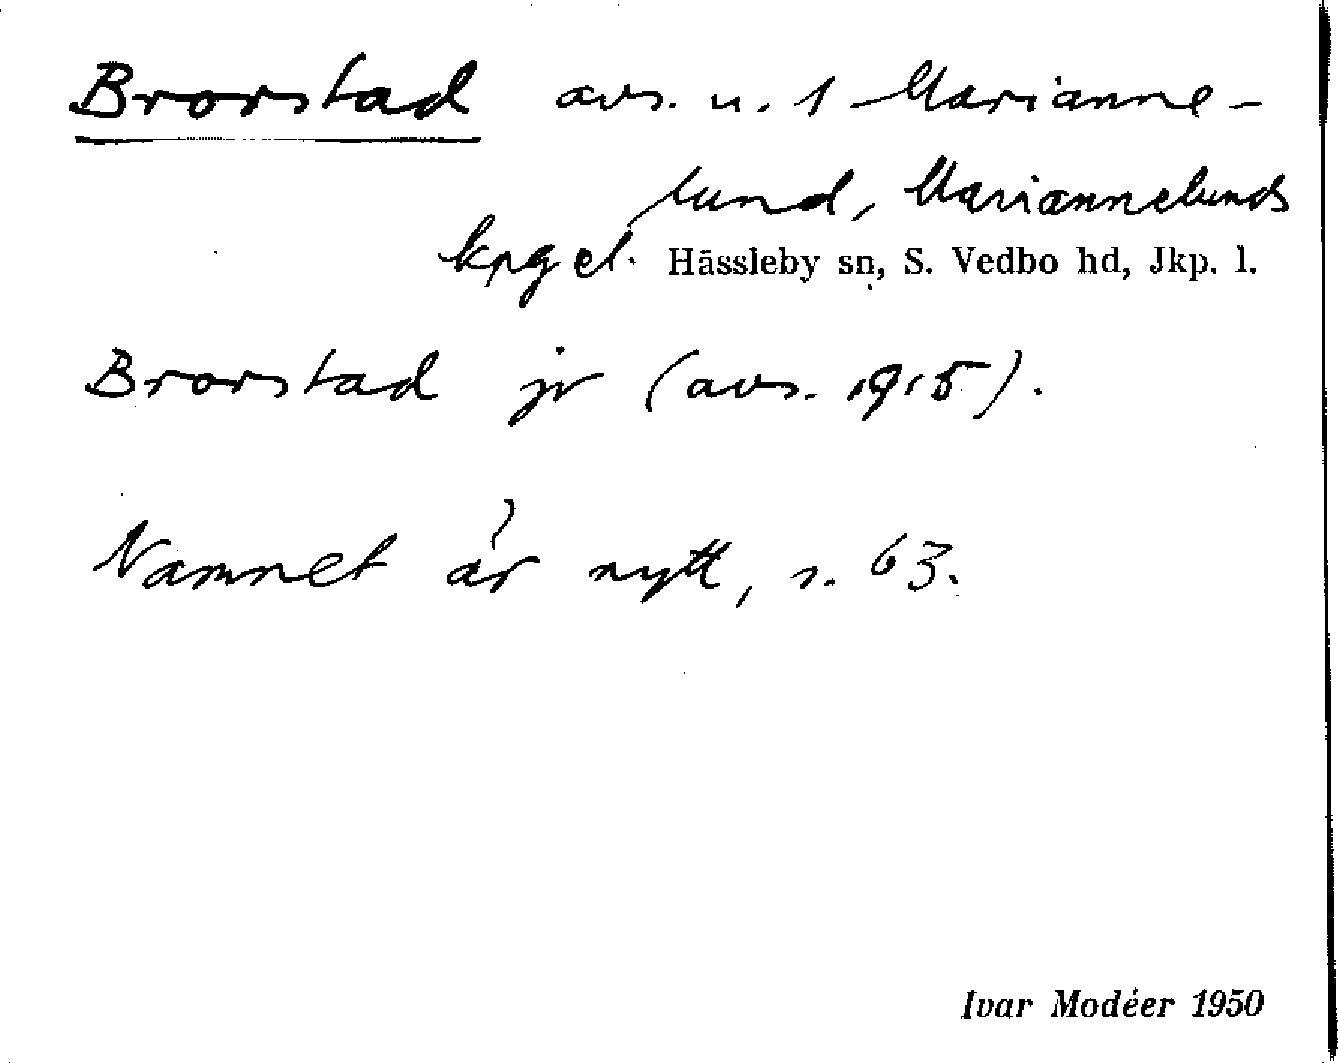 Brorstad avs. u. 1 Marianne-
lund, Mariannelunds
kpgel. Hässleby sn, S. Vedbo hd, Jkp. l.
Brorstad jr (avs. 1915).
Namnet är nytt, s. 63.
Ivar Modéer 1950